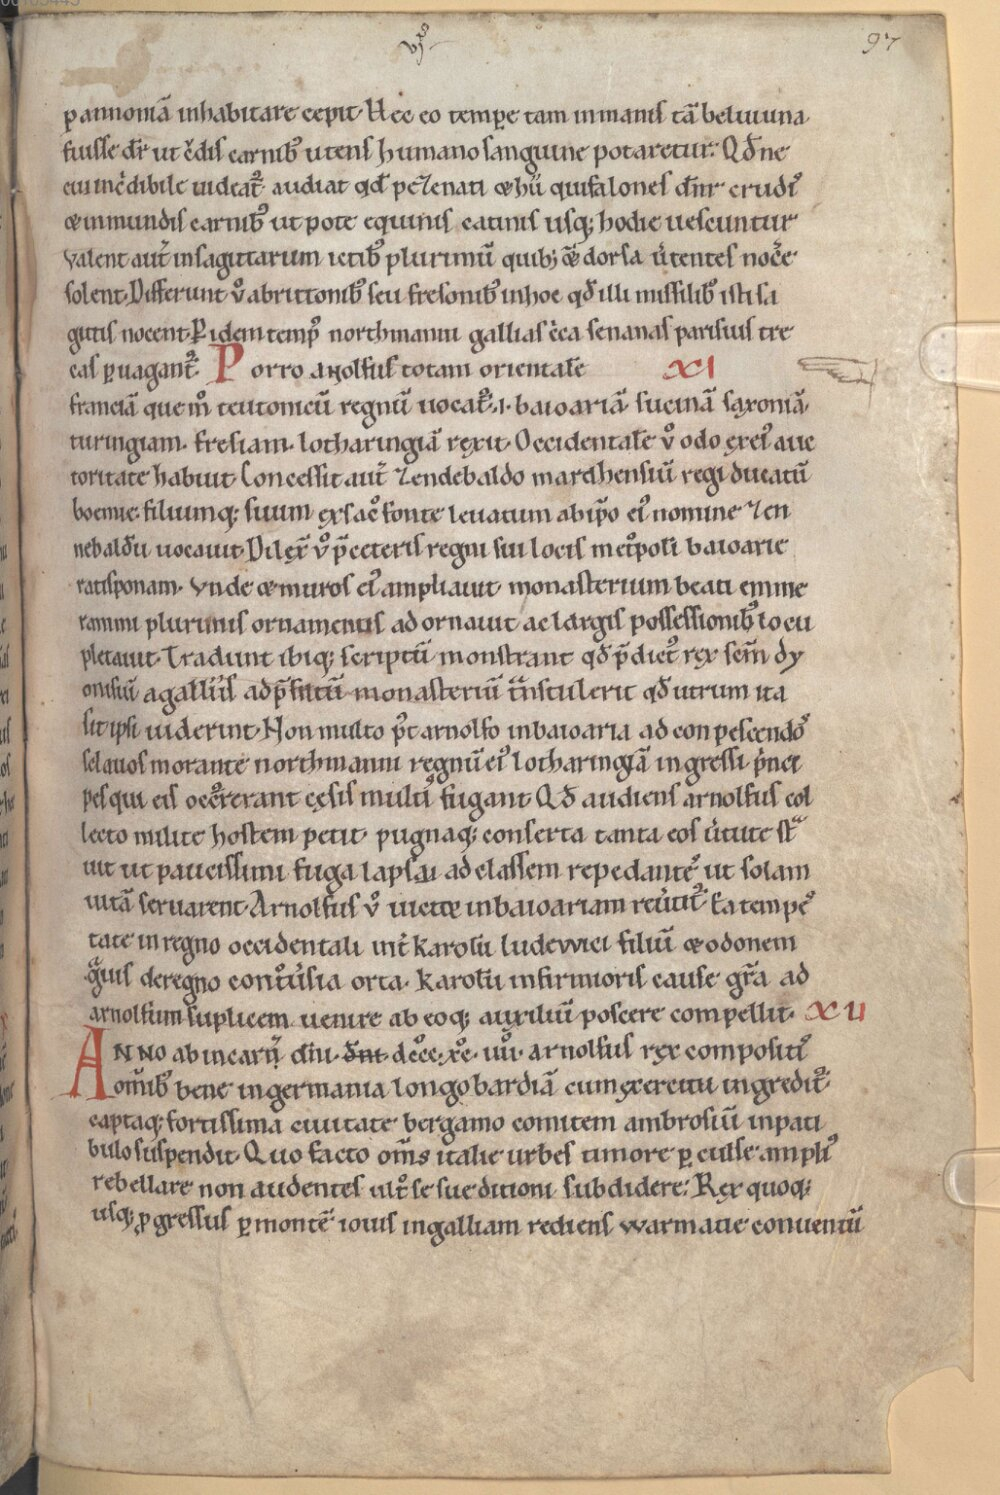 00103443
vjº
97
pannoniā inhabitare cepit. Hec eo tempe tam inmanis tā beluuina
fuisse dr̄ ut c̄dis carnib; utens humano sanguine potaretur. Qđ ne
cui inc̄dibile uideat᷒ audiat qđ pecenati ⁊ hii qui falones dn̄r crudis
⁊ inmundis carnib; ut pote equinis catinis usq; hodie uescuntur
Valent aut̄ in sagittarum ictib; plurimū quib; ⁊ dorsa ūtentes noc̄e
solent. Differunt v̊ a brittonib; seu fresonib; in hoc qđ illi missilib; isti sa
gittis nocent. P idem temp᷒ northmanni gallias c̄ca senanas parisius tre
cas puagant᷒. Porro arnolfus totam orientalē XI
franciā que m̊ teutonicū regnū uocat᷒ .i. baioariā sueuiā saxoniā
turingiam. fresiam. lotharingiā rexit. Occidentalē v̊ odo ex ei᷒ auc
toritate habuit. Concessit aut̄ Zendebaldo marahensiū regi ducatū
boemie. filiumq; suum ex sac̊ fonte leuatum ab ip̄o ei᷒ nomine Zen
nebaldū uocauit. Dilex̄ v̊ p̄ ceteris regni sui locis met᷒poli baioarie
ratisponam. Vnde ⁊ muros ei᷒ ampliauit monasterium beati emme
rammi plurimis ornamentis adornauit ac largis possessionib; locu
pletauit. Tradunt ibiq; scriptū monstrant qđ p̄dict᷒ rex sc̄m dy
onisiū a galliis ad p̄fatū monasteriū t̄nstulerit qđ utrum ita
sit ipsi uiderint. Non multo p̄t arnolfo in baioaria ad conpescendos
sclauos morante northmanni regnū ei᷒ lotharingiā ingressi p̄nci
pes qui eis occ̄rerant cęsis multis fugant. Qđ audiens arnolfus col
lecto milite hostem petit pugnaq; conserta tanta eos ūtute st̄a
uit ut paucissimi fuga lapsi ad classem repedantes ut solam
uitā seruarent. Arnolfus v̊ uictor in baioariam reūtit᷒. Ea tempes
tate in regno occidentali int̄ Karolū ludewici filiū ⁊ odonem
g̃uis de regno cont̊ūsia orta. Karolū infirmioris cause gr̄a ad
arnolfum suplicem uenire ab eoq; auxiliū poscere compellit. XII
ANNO ab incarn̄. dn̄i. dn̄t. dccc. xc. iiii. arnolfus rex compositis
om̄ib; bene in germania longobardiā cum exercitu ingredit᷒
captaq; fortissima ciuitate bergamo comitem ambrosiū in pati
bulo suspendit. Quo facto om̄s italie urbes timore pculse amplius
rebellare non audentes ult̊ se sue ditioni subdidere. Rex quoq;
usq; pgressus p montē iouis in galliam rediens warmatie conuentū